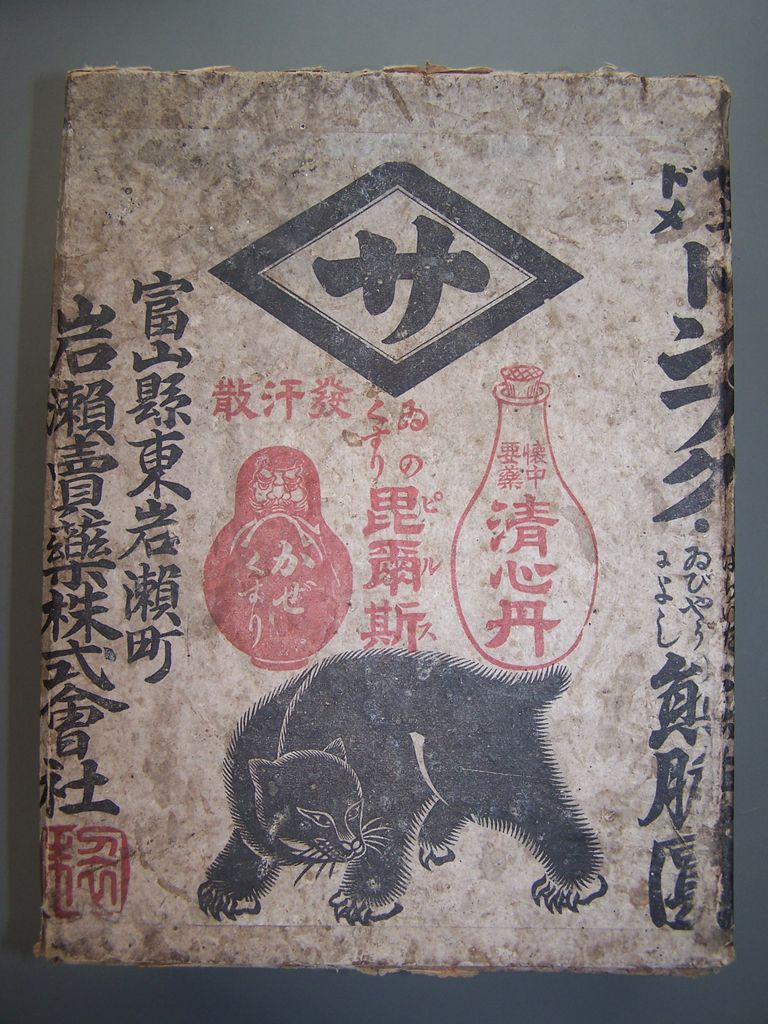 サ
ドメ
トンプク
ゐびやうによし
熊胆圓
懐中
要薬
清心丹
ゐの
くすり
毘爾斯
ピルス
發汗散
かぜ
くすり
富山縣東岩瀬町
岩瀬賣藥株式會社